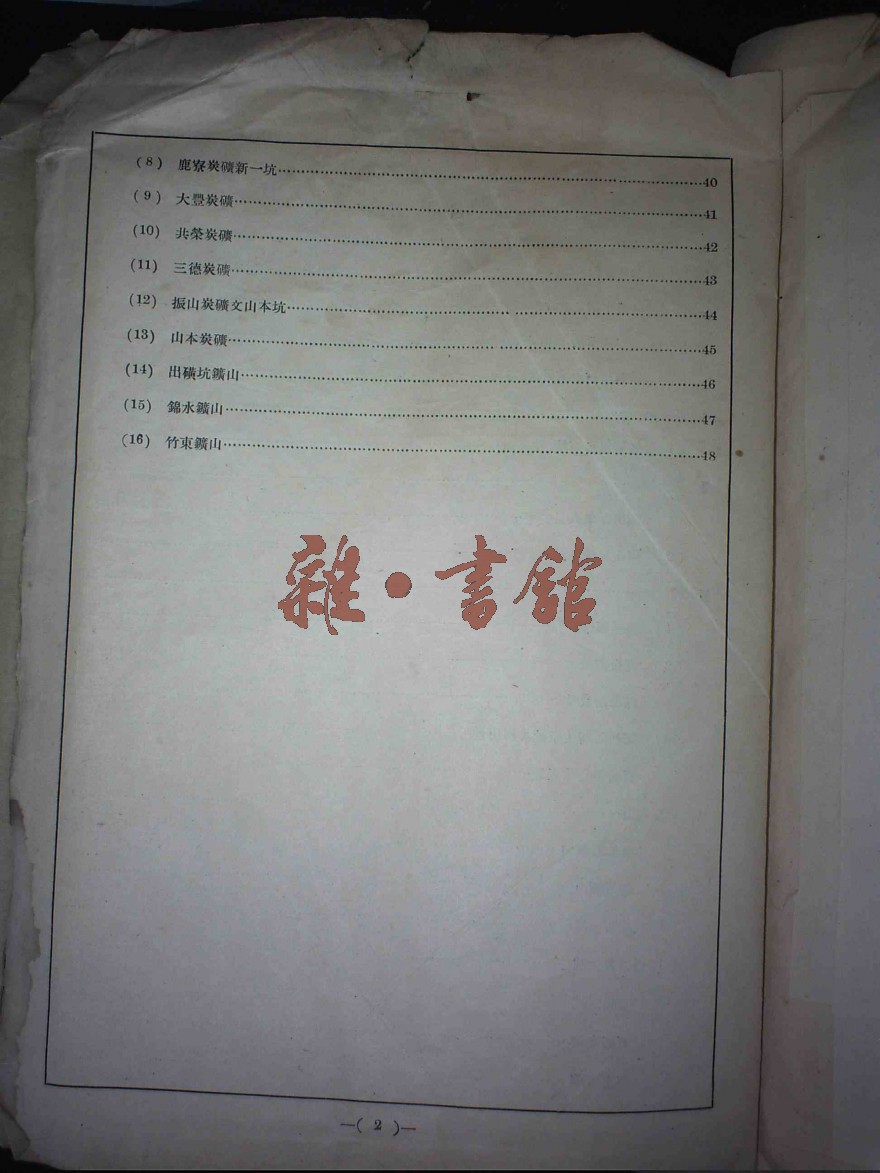 (8) 鹿寮炭礦新一坑……40
(9) 大豐炭礦……41
(10) 共榮炭礦……42
(11) 三德炭礦……43
(12) 振山炭礦文山本坑……44
(13) 山本炭礦……45
(14) 出磺坑鑛山……46
(15) 錦水鑛山……47
(16) 竹東鑛山……48
雜•書館
—( 2 )—